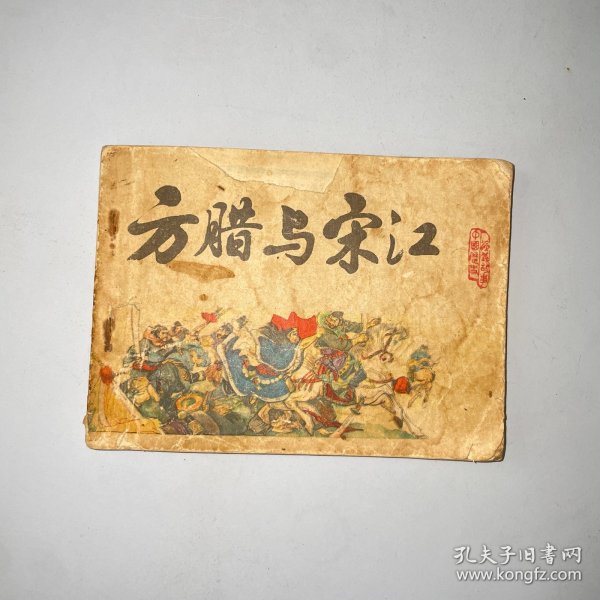 方腊与宋江
中国历史
孔夫子旧書网
www.kongfz.com